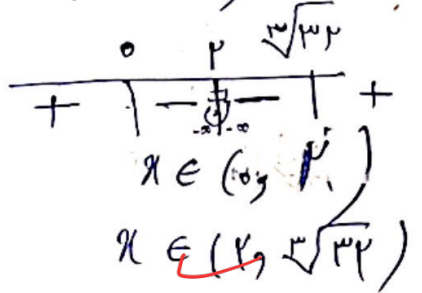 ۰ ۲ ∛۳۲
+ − − +
-∞ -∞
x ∈ (۰, ۲)
x ∈ (۲, ∛۳۲)